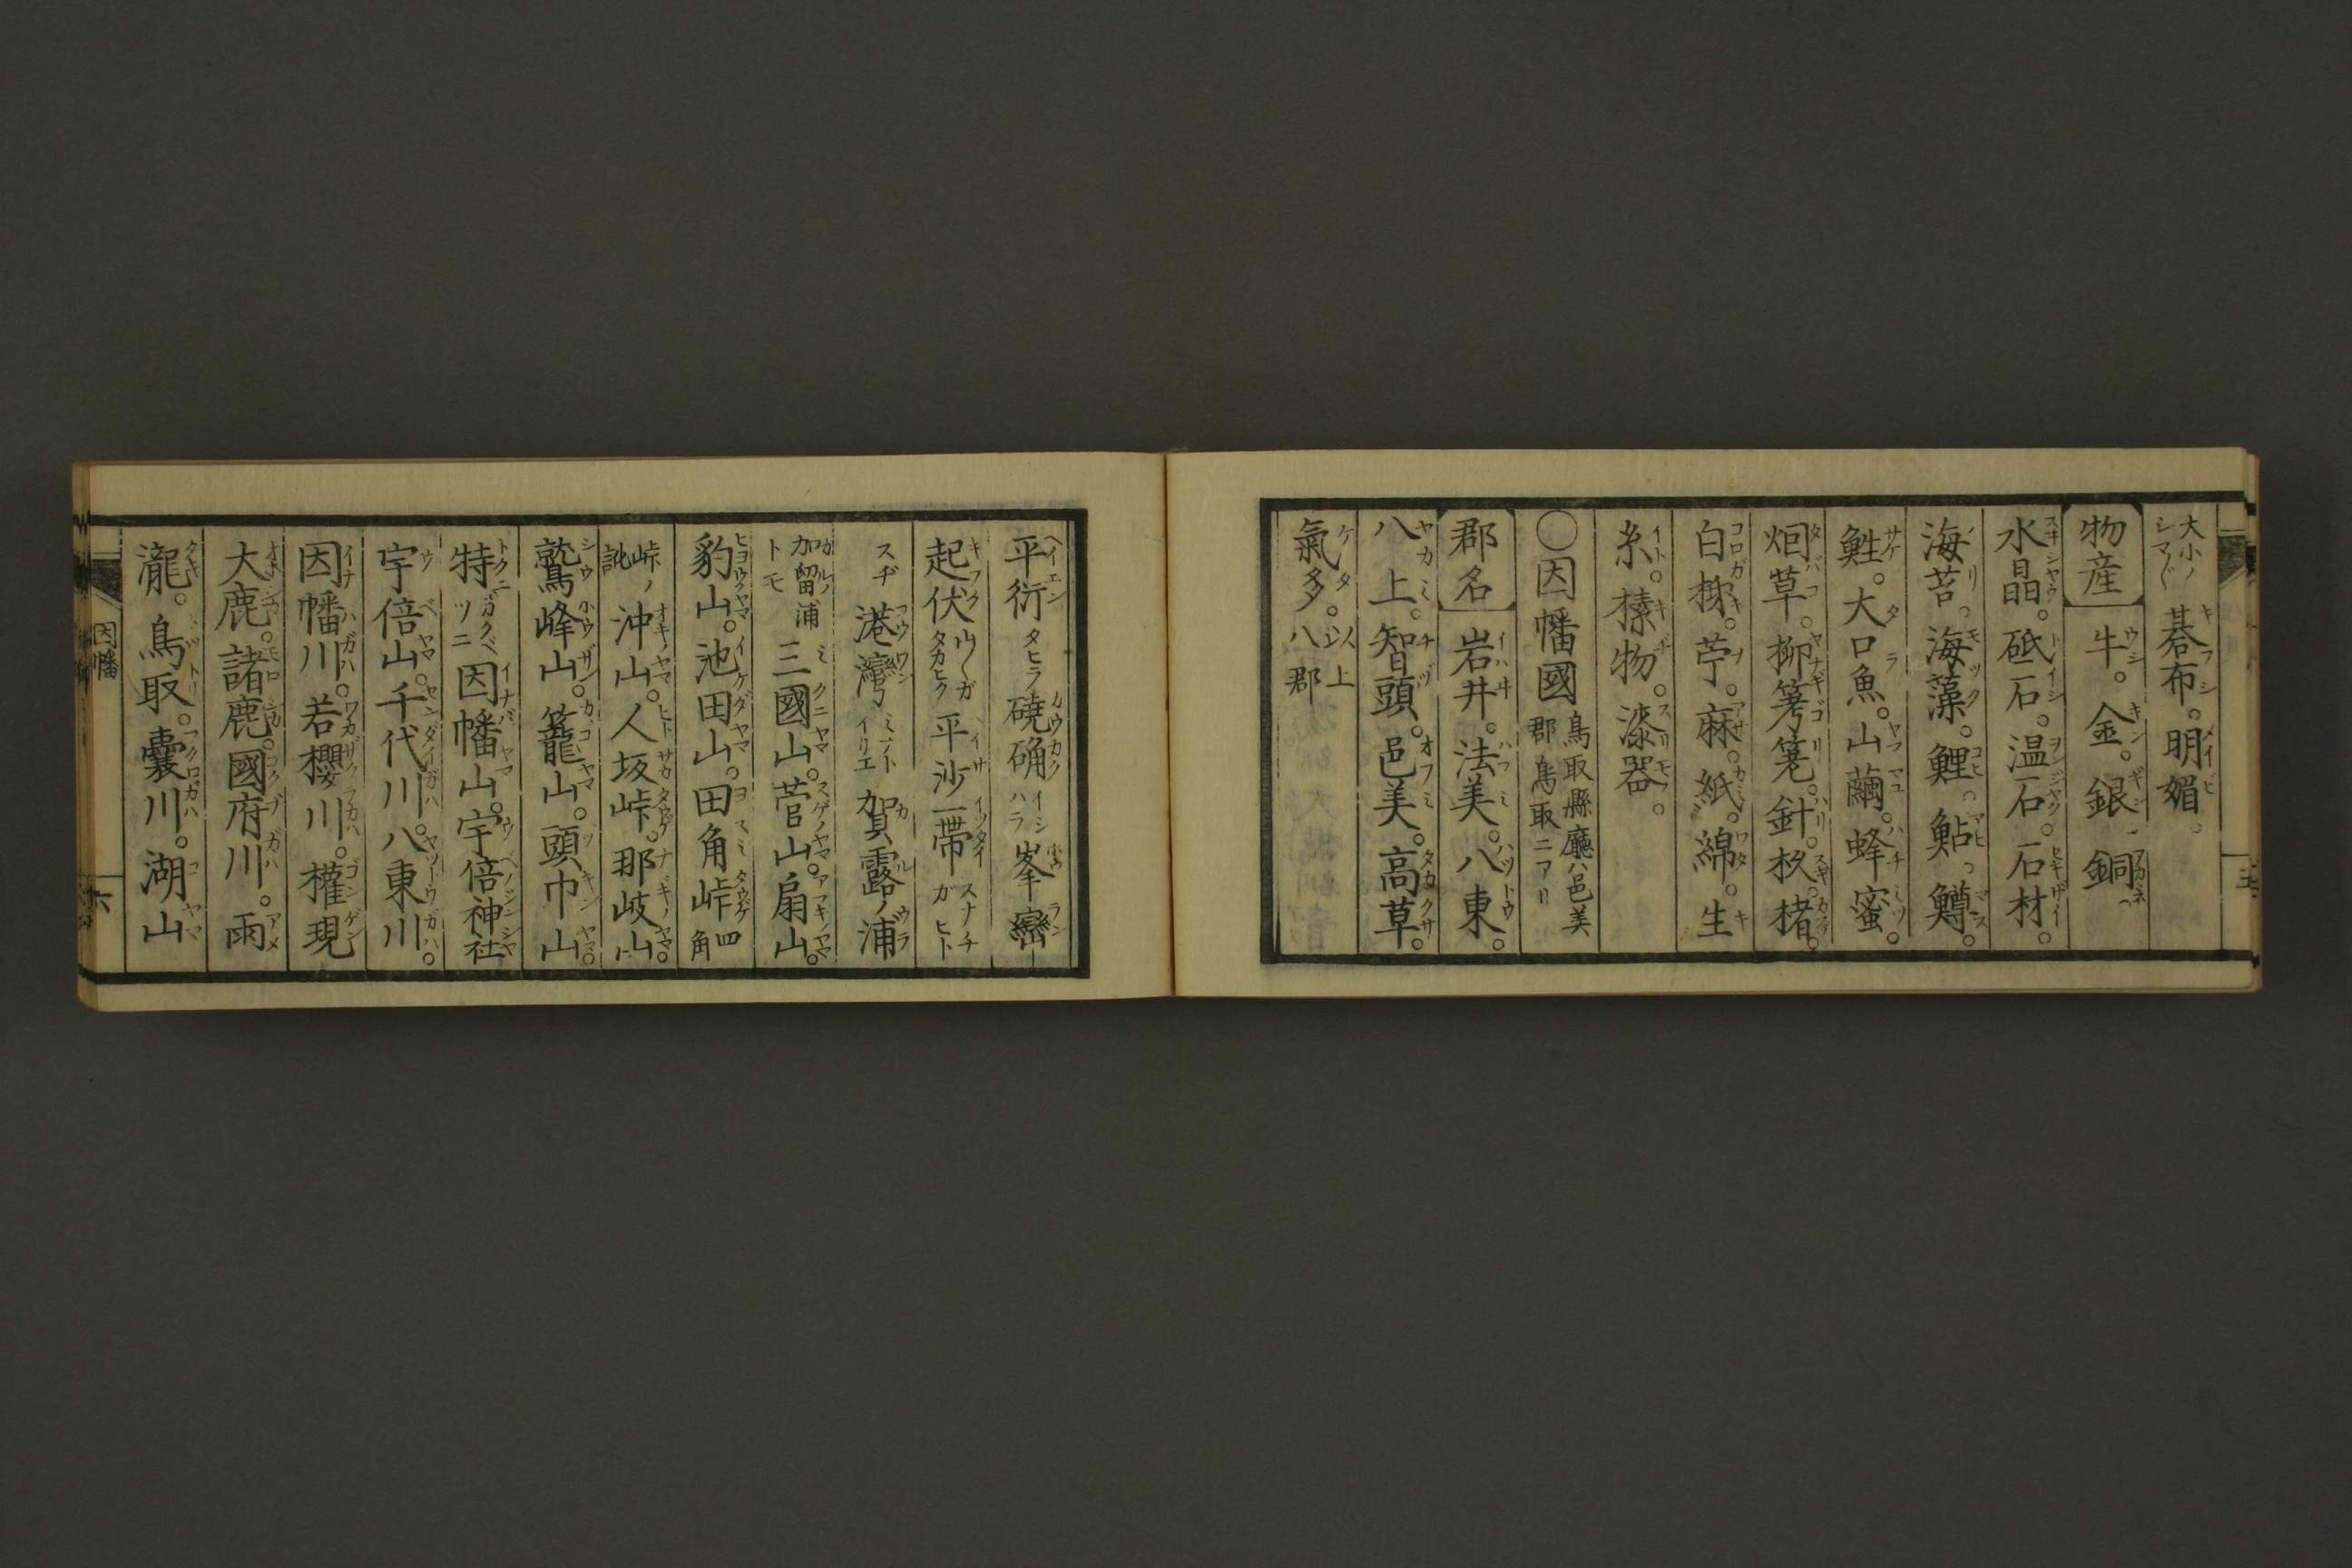 大小ノシマ〴〵 碁布。明媚。
物産 牛。金。銀。銅。
水晶。砥石。温石。石材。
海苔。海藻。鯉。鮎。鱒。
鮏。大口魚。山繭。蜂蜜。
烟草。柳箸箱。針。杉。楮。
白柹。苧。麻。紙。綿。生
糸。𣜿物。漆器。
〇因幡國 鳥取縣廳ハ邑美郡鳥取ニアリ
郡名 岩井。法美。八東。
八上。智頭。邑美。高草。
氣多。以上八郡
平衍タヒラ 磽确イシハラ 峯巒
起伏ウ〳〵ガタカヒク 平沙一帯スナチガヒト
スヂ 港灣ミナトイリエ 賀露ノ浦
加留浦トモ 三國山。菅山。扇山。
豹山。池田山。田角峠四角
峠ノ訛 沖山。人坂峠。那岐山。
鷲峰山。籠山。頭巾山。
特ニカクベツニ 因幡山。宇倍神社
宇倍山。千代川。八東川。
因幡川。若櫻川。權現
大鹿。諸鹿。國府川。雨
瀧。鳥取。嚢川。湖山
因幡
六